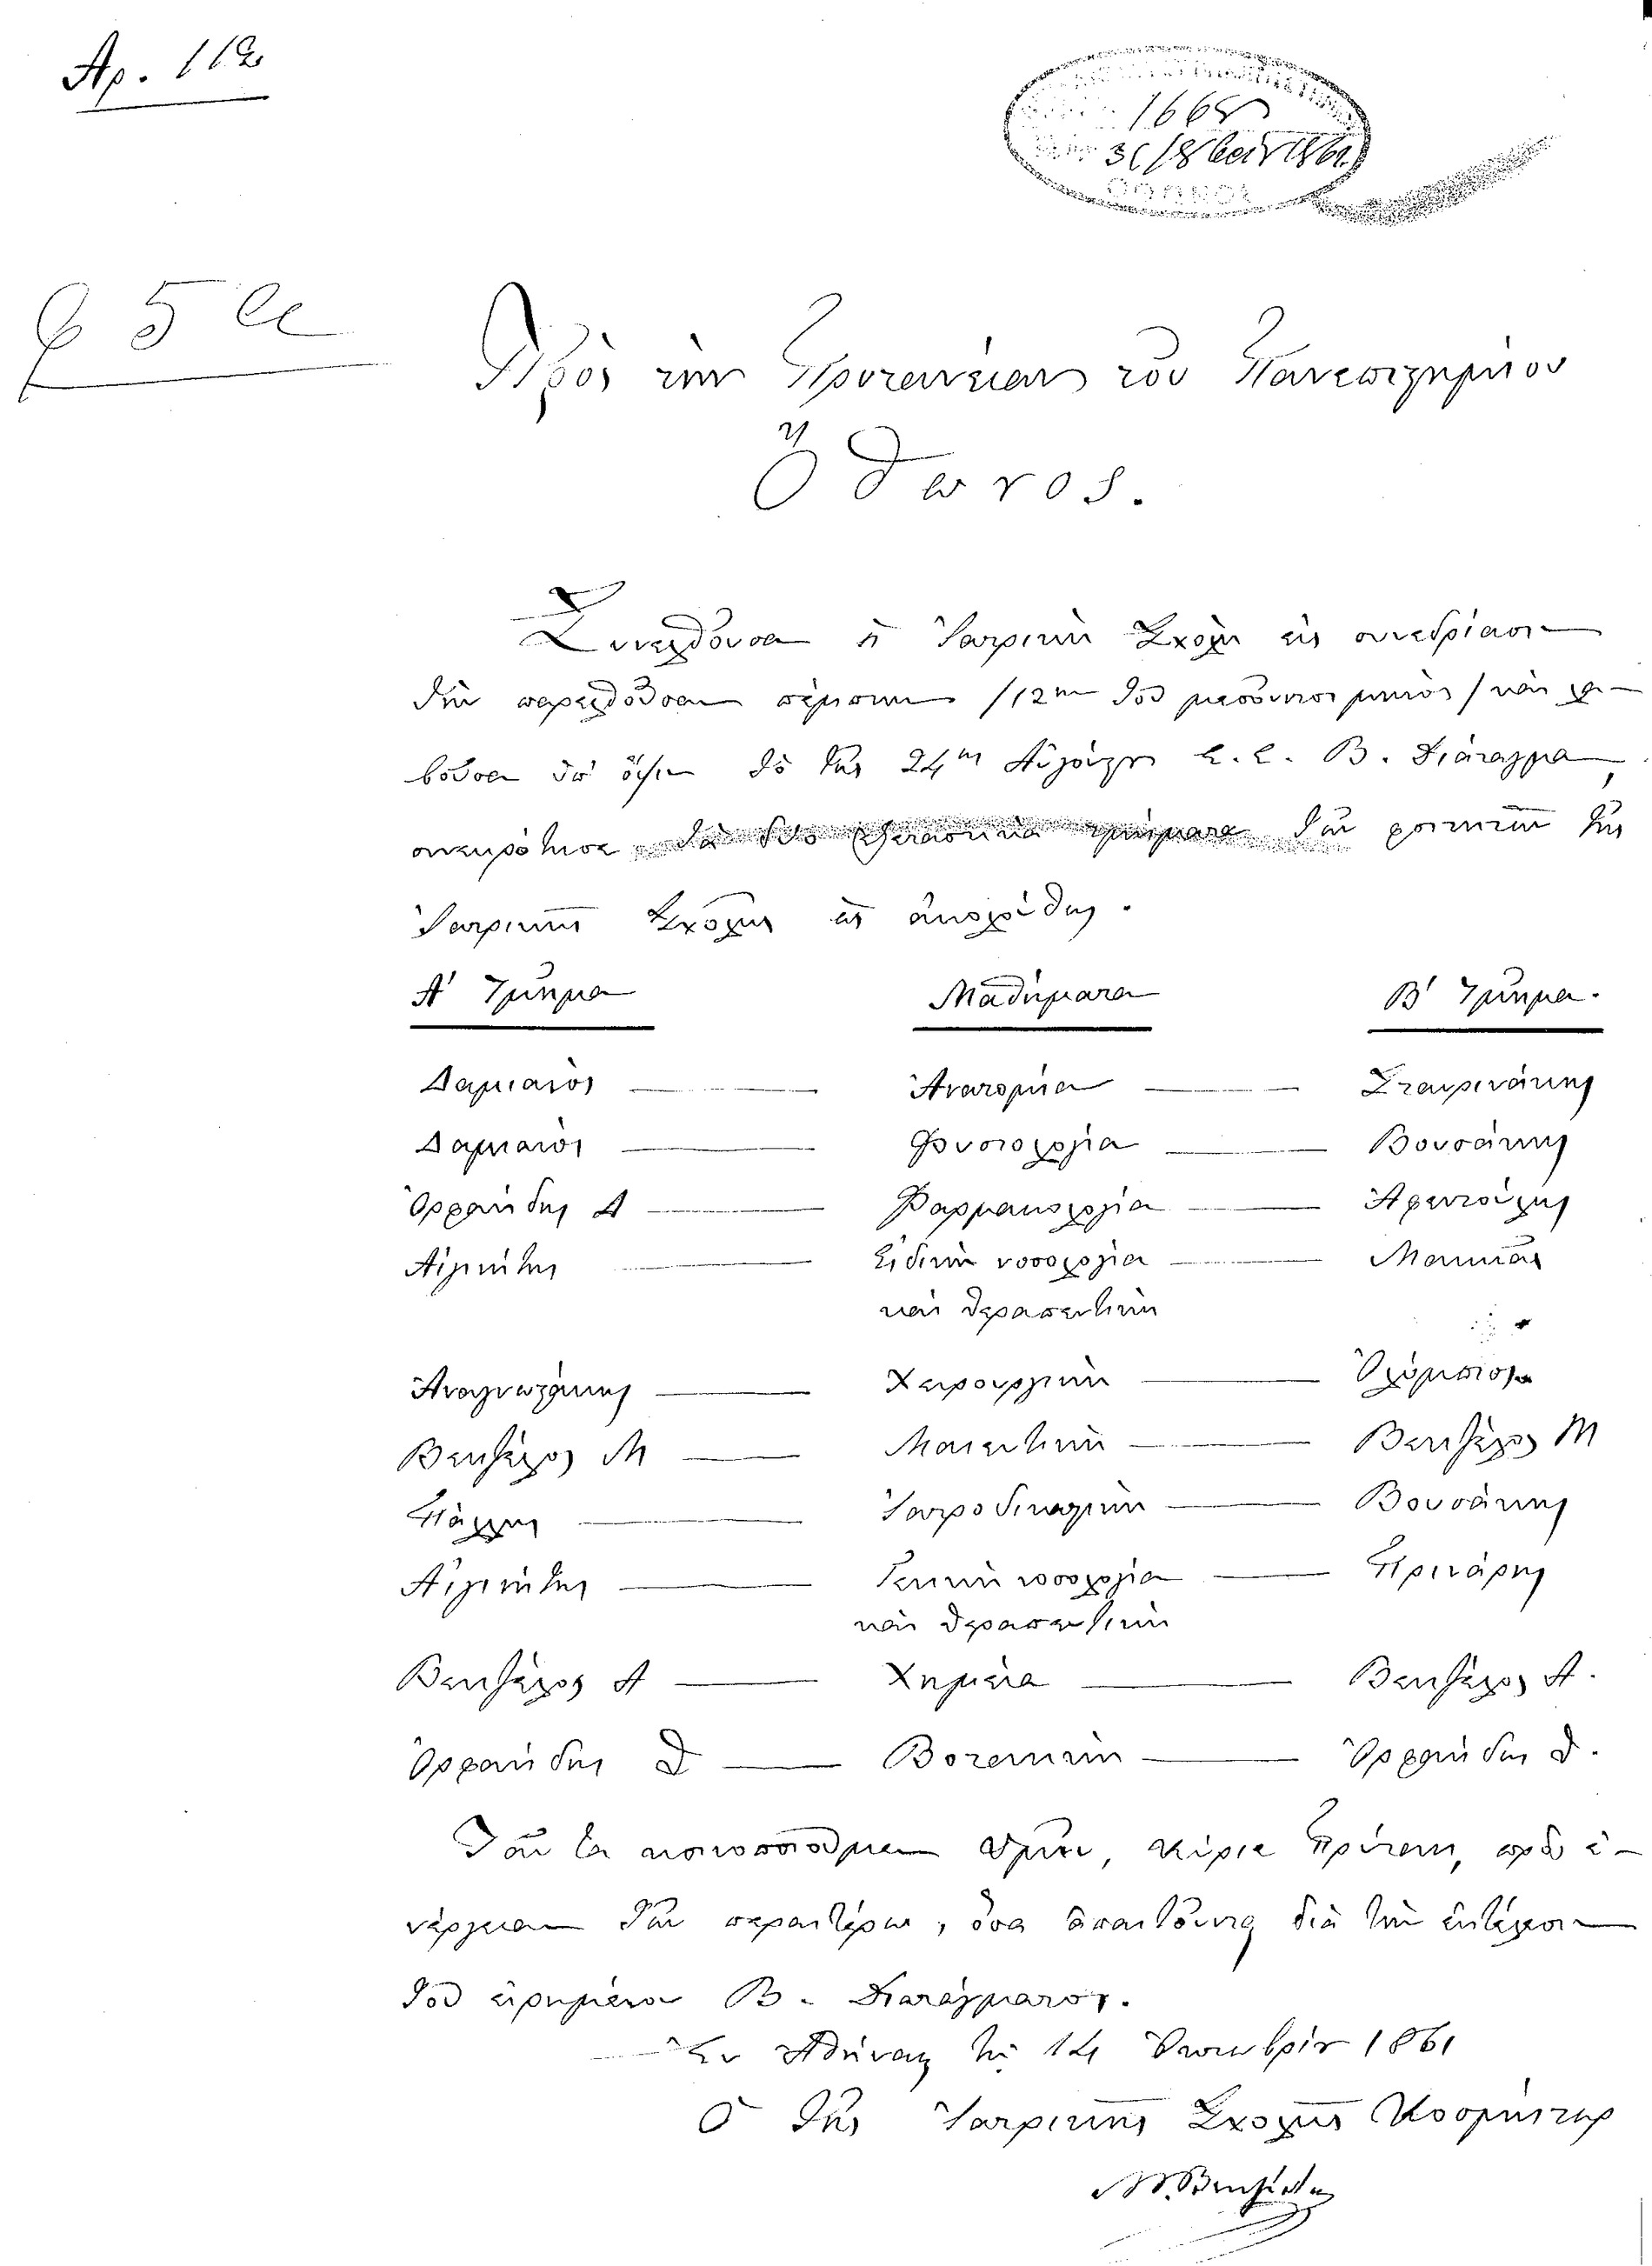 Αρ. 112
1668
31 8βρίου 1861
Πρὸς τὴν Πρυτανείαν τοῦ Πανεπιστημίου
Ὄθωνος.
Συνελθοῦσα ἡ Ἰατρικὴ Σχολὴ εἰς συνεδρίασιν
τὴν παρελθοῦσαν πέμπτην /12ην τοῦ μεσοῦντος μηνὸς/ καὶ λα-
βοῦσα ὑπ' ὄψιν τὸ τῆς 24ης Αὐγούστου ἐ. ἐ. Β. Διάταγμα,
συνεκρότησε τὰ δύο ἐξεταστικὰ τμήματα τῶν φοιτητῶν τῆς
Ἰατρικῆς Σχολῆς ὡς ἀκολούθως.
Α' Τμῆμα Μαθήματα Β' Τμῆμα.
Δαμιανὸς Ἀνατομία Σταυρινάκης
Δαμιανὸς Φυσιολογία Βουσάκης
Ὀρφανίδης Δ Φαρμακολογία Ἀφεντούλης
Αἰγινήτης Εἰδικὴ νοσολογία Μακκᾶς
καὶ θεραπευτικὴ
Ἀναγνωστάκης Χειρουργικὴ Ὀλύμπιος
Βενιζέλος Μ Μαιευτικὴ Βενιζέλος Μ
Πάλλης Ἰατροδικαστικὴ Βουσάκης
Αἰγινήτης Γενικὴ νοσολογία Πρινάρης
καὶ θεραπευτικὴ
Βενιζέλος Α Χημεία Βενιζέλος Α.
Ὀρφανίδης Θ Βοτανικὴ Ὀρφανίδης Θ.
Ταῦτα κοινοποιοῦμεν ὑμῖν, κύριε Πρύτανι, πρὸς ἐ-
νέργειαν τῶν περαιτέρω, ὅσα ἀπαιτοῦνται διὰ τὴν ἐκτέλεσιν
τοῦ εἰρημένου Β. Διατάγματος.
Ἐν Ἀθήναις τῇ 14 Ὀκτωβρίου 1861
Ὁ τῆς Ἰατρικῆς Σχολῆς Κοσμήτωρ
Μ. Βενιζέλος